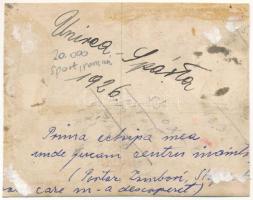 Unirea - Spárta
20.000
Sport, román
1926.
Prima echipa mea
unde jucam centru inainte
(Portar Zimbori, St
care m-a descoperit)